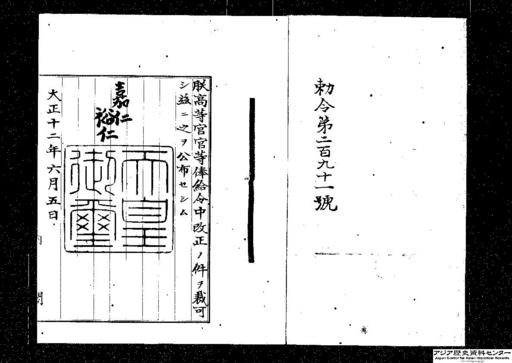 勅令第二百九十一號
朕高等官官等俸給令中改正ノ件ヲ裁可
シ茲ニ之ヲ公布セシム
嘉仁
裕仁
天皇御璽
大正十二年六月五日
アジア歴史資料センター
Japan Center for Asian Historical Records